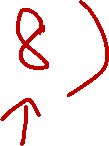 8)
↑